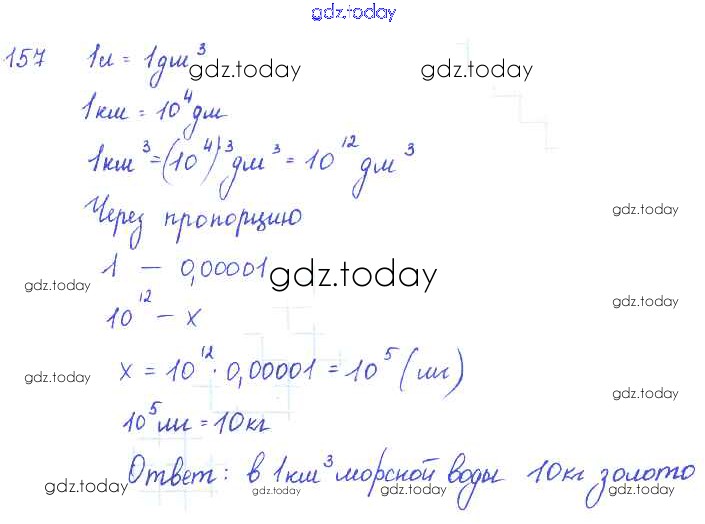 gdz.today
157 1л = 1дм³
gdz.today gdz.today
1км = 10⁴дм
1км³ = (10⁴)³дм³ = 10¹²дм³
Через пропорцию
gdz.today
1 – 0,00001
gdz.today
gdz.today
10¹² – x
gdz.today
x = 10¹² · 0,00001 = 10⁵ (мг)
gdz.today
gdz.today
10⁵мг = 10кг
Ответ: в 1км³ морской воды 10кг золото
gdz.today gdz.today gdz.today gdz.today